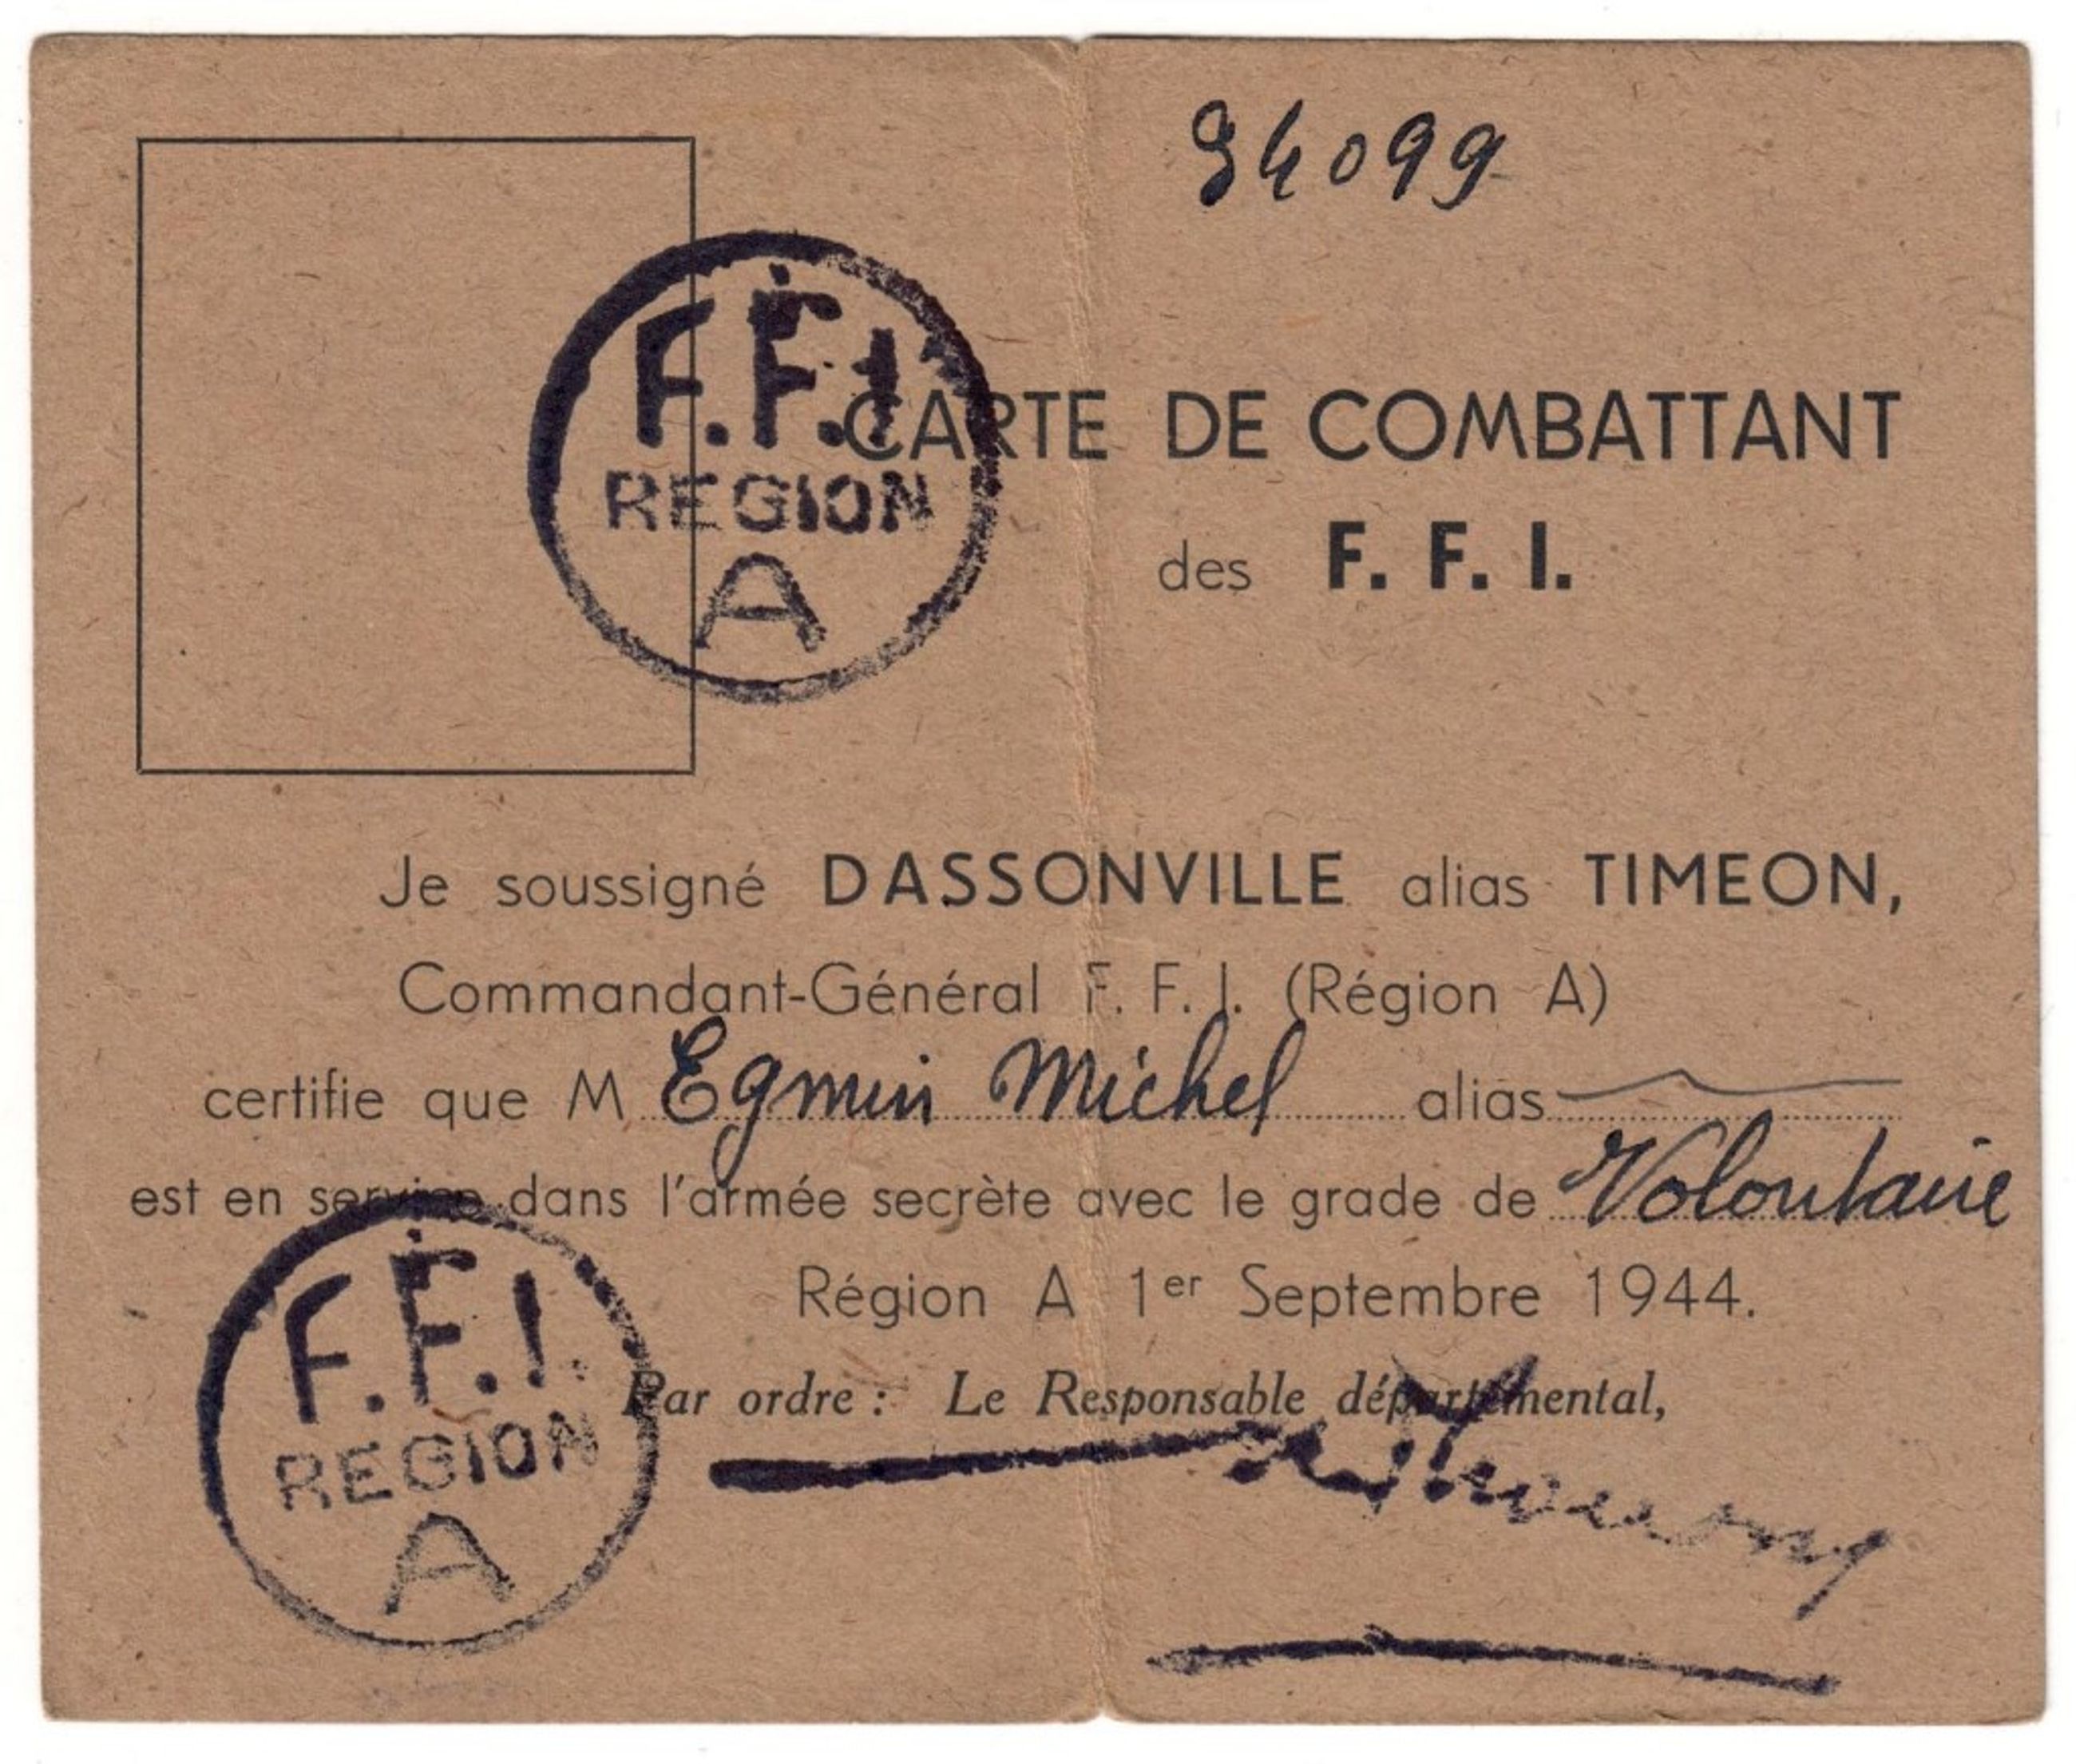 94099
F.F.I.
REGION
A
CARTE DE COMBATTANT
des F. F. I.
Je soussigné DASSONVILLE alias TIMEON,
Commandant-Général F. F. I. (Région A)
certifie que M Egmin Michel alias
est en service dans l'armée secrète avec le grade de Volontaire
Région A 1er Septembre 1944.
Par ordre : Le Responsable départemental,
F.F.I.
REGION
A